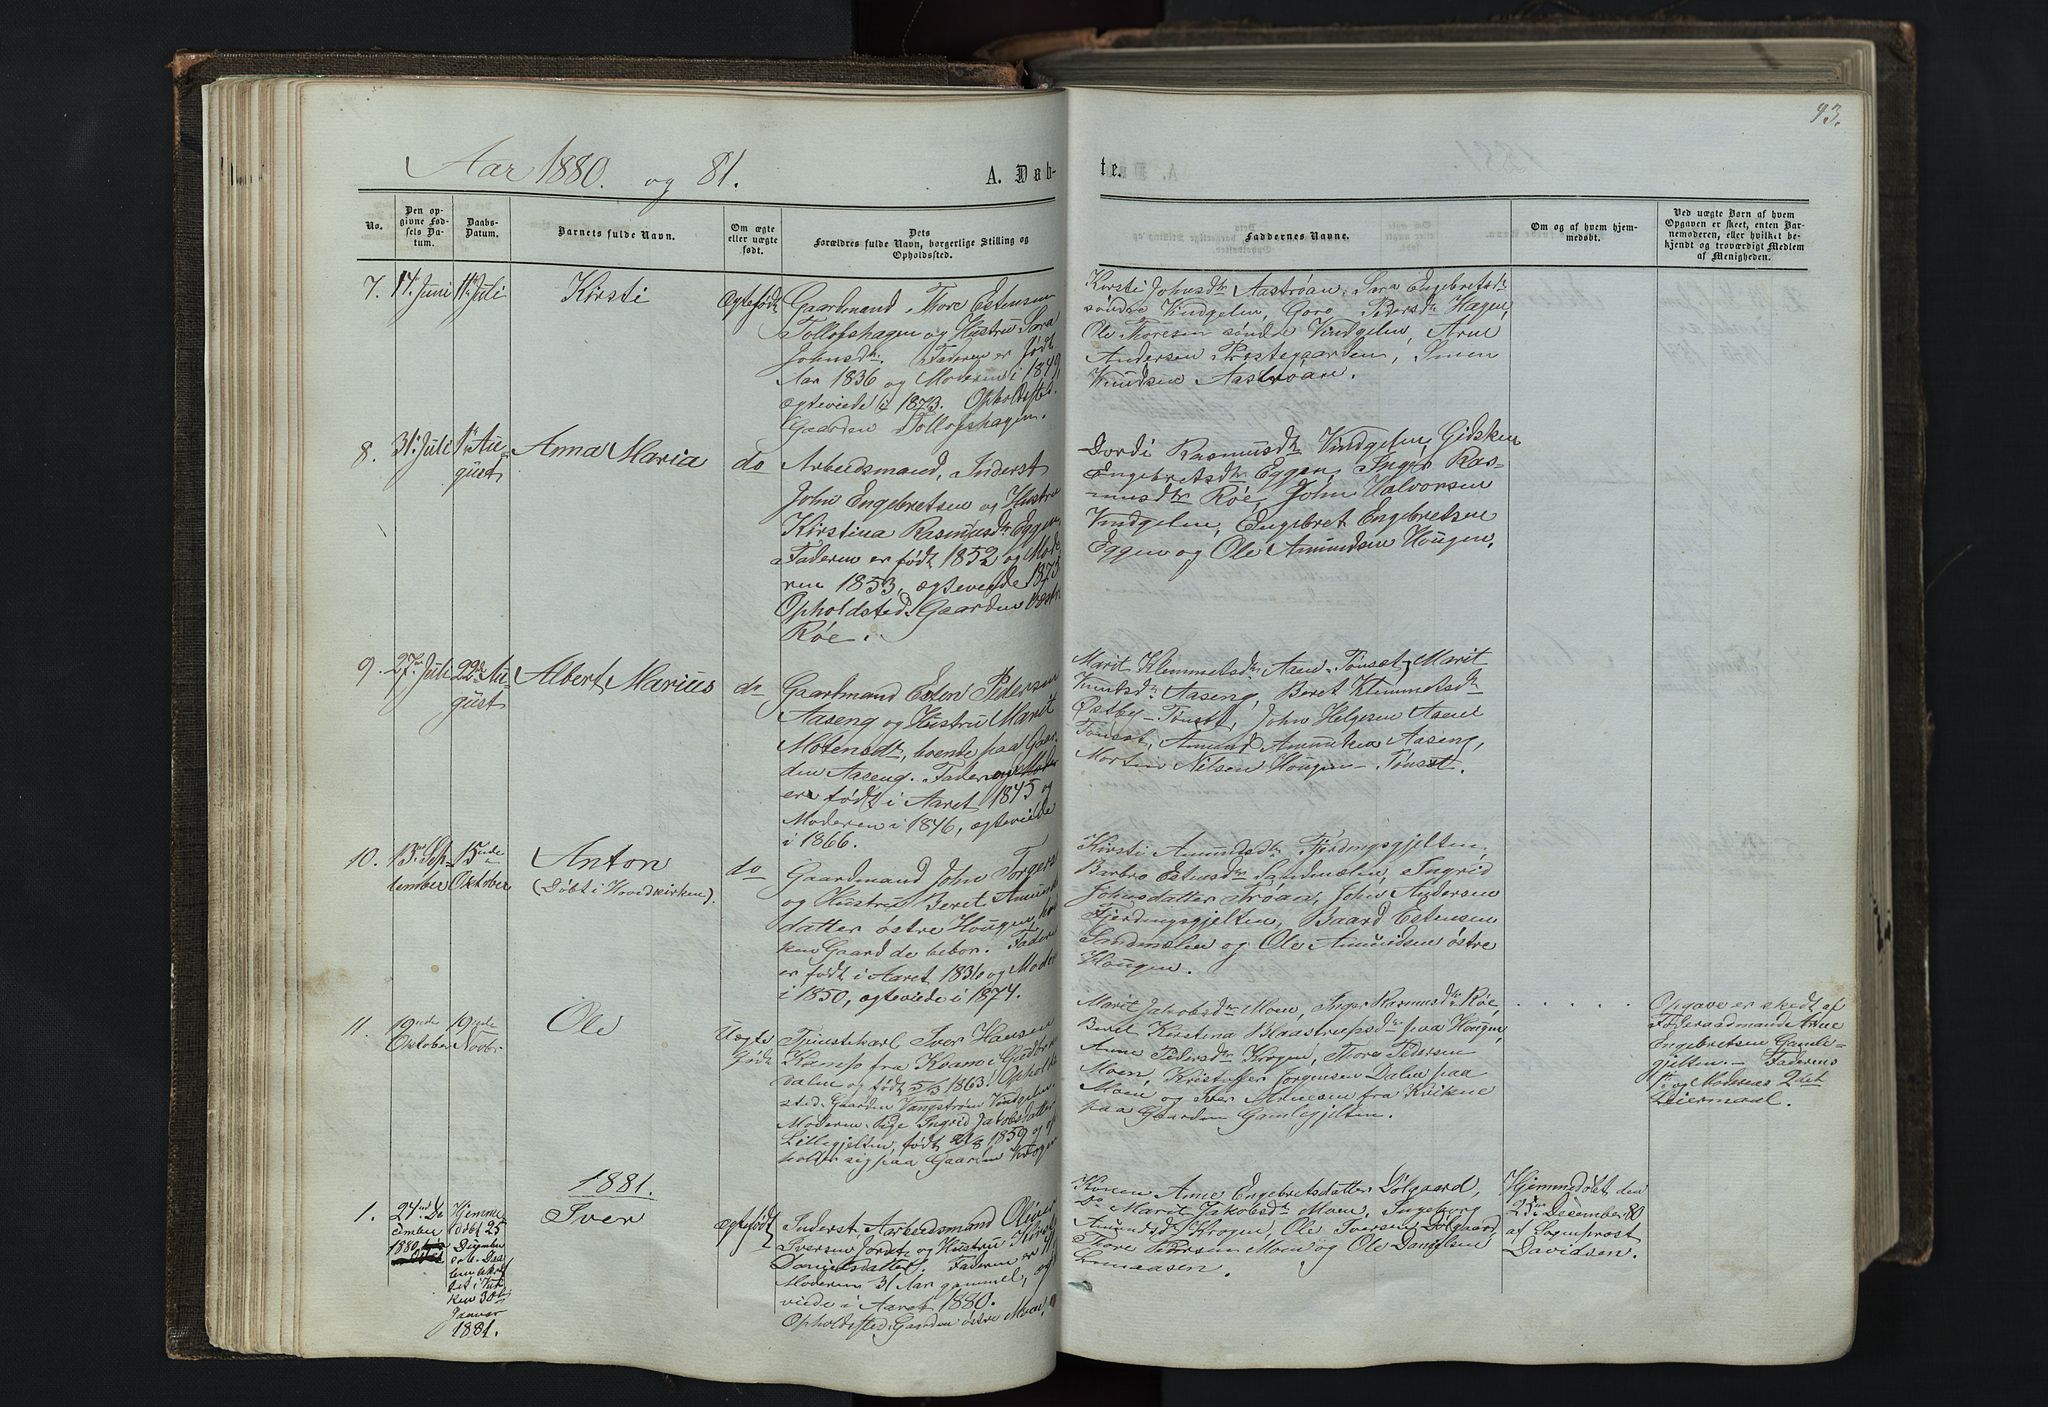 93.
Aar 1880. og 81.
A. Døb-
te.
No.
Den op-
givne Fød-
sels Da-
tum.
Daabs-
Datum.
Barnets fulde Navn.
Om ægte
eller uægte
født.
Dets
Forældres fulde Navn, borgerlige Stilling og
Opholdssted.
Faddernes Navne.
Om og af hvem hjem-
medøbt.
Ved uægte Børn af hvem
Opgaven er skeet, enten Bar-
nemoderen, eller hvilket be-
kjendt og troværdigt Medlem
af Menigheden.
7.
14. Juni
11te Juli
Kirsti
Ægtefødt
Gaardmand Thore Estensen
Tollofshagen og Hustru Sara
Johnsdtr. Faderen er født
Aar 1836 og Moderen i 1849,
ægteviede i 1873. Opholdssted
Gaarden Tollofshagen.
Kirsti Johnsdtr Aastrøan, Sara Engebretsdtr
søndre Vindgelen, Goro Pedersdtr Hagen,
Ole Thoresen søndre Vindgelen, Arne
Andersen Prestegaarden, Simen
Knudsen Aastrøan.
8.
31. Juli
1ste Au-
gust
Anna Maria
do
Arbeidsmand, Inderst
John Engebretsen og Hustru
Kirstina Rasmusdtr Eggen
Faderen er født 1852 og Mode-
ren 1853, ægteviede 1873
Opholdsted Gaarden Vestre
Røe.
Dordi Rasmusdtr Vindgelen, Gidsken
Engebretsdtr Eggen, Inger Ras-
musdtr Røe, John Halvorsen
Vindgelen, Engebret Engebretsen
Eggen og Ole Amundsen Hougen.
9.
27. Juli
22de Au-
gust
Albert Marius
do
Gaardmand Esten Pedersen
Aaseng og Hustru Marit
Mortensdtr, boende paa Gaar-
den Aaseng. Faderen
er født i Aaret 1845 og
Moderen i 1846, ægteviede
i 1866.
Marit Klemmetsdtr Aaen-Tønset, Marit
Knutsdtr Aaseng, Beret Klemmetsdtr
Østby-Tønset, John Helgesen Aaen
Tønset, Amund Amundsen Aaseng,
Morten Nilsen Hougen-Tønset.
10.
13. Sep-
tember
15nde
Oktober
Anton
(Døbt i Hovedkirken).
do
Gaardmand John Torgersen
og Hustru Beret Amunds-
datter østre Hougen, hvil-
ken Gaard de bebor. Faderen
er født i Aaret 1836 og Moderen
i 1850, ægteviede i 1874.
Kirsti Amundsdtr Fjerdingsgjelten,
Barbro Estensdtr Sandmælen, Ingrid
Johnsdatter Strøan, John Andersen
Fjerdingsgjelten, Baard Estensen
Sandmælen og Ole Amundsen østre
Hougen.
11.
19nde
Oktober
19nde
Novbr.
Ole
Uægte
Født
Tjenestekarl Iver Hansen
Kamp fra Kvam i Gudbrands-
dalen og født 1863. Opholds-
sted Gaarden Tangstrøm Vindgelen.
Moderen Pige Ingrid Jakobsdatter
Lillegjelten, født 1859 og op-
holder sig paa Gaarden Krogen
Marit Jakobsdtr Moen, Inger Rasmusdtr Røe,
Beret Kirstina Haastrupsdtr paa Hougen,
Anne Pedersdtr Krogen, Thore Pedersen
Moen, Kristoffer Jørgensen Dalen paa
Moen og Iver Arnesen fra Kvikne
paa Gaarden Gamlegjelten.
Opgave er skedt af
Føderaadmand Arne
Engebretsen Gamle-
gjelten. Faderens
1ste og Moderens 2det
Leiermaal.
1881.
1.
24nd De-
cember
1880
Hjemme-
døbt 25
December
Daa-
ben
Kir-
ken 30te
Januar
1881.
Iver
Ægtefødt
Inderst, Arbeidsmand Oliver
Iversen Jordet og Hustru Kirsti
Danielsdatter. Faderen er
Moderen 31 Aar gammel,
viede i Aaret 1880.
Opholdssted Gaarden østre Moen.
Konen Anne Engebretsdatter Dølgaard,
Do Marit Jakobsdtr Moen, Ingeborg
Amundsdtr Krogen, Ole Iversen Dølgaard,
Thore Pedersen Moen og Ole Danielsen
Lomaasen.
Hjemmedøbt den
25de December 80
af Sogneprost
Davidsen.